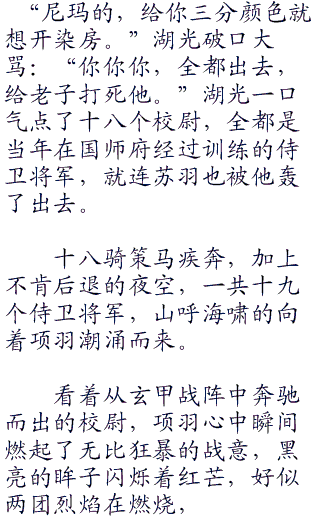 “尼玛的，给你三分颜色就
想开染房。”湖光破口大
骂：“你你你，全都出去，
给老子打死他。”湖光一口
气点了十八个校尉，全都是
当年在国师府经过训练的侍
卫将军，就连苏羽也被他轰
了出去。
十八骑策马疾奔，加上
不肯后退的夜空，一共十九
个侍卫将军，山呼海啸的向
着项羽潮涌而来。
看着从玄甲战阵中奔驰
而出的校尉，项羽心中瞬间
燃起了无比狂暴的战意，黑
亮的眸子闪烁着红芒，好似
两团烈焰在燃烧，